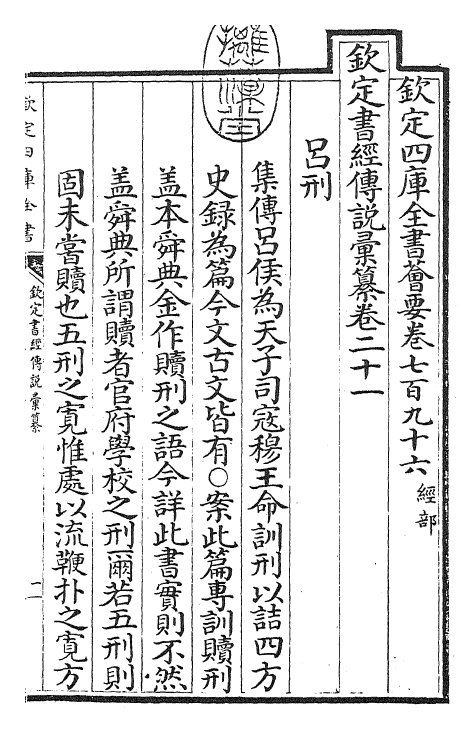 欽定四庫全書薈要卷七百九十六 經部
欽定書經傳說彙纂卷二十一
呂刑
集傳呂侯為天子司寇穆王命訓刑以詰四方
史録為篇今文古文皆有○案此篇專訓贖刑
盖本舜典金作贖刑之語今詳此書實則不然
盖舜典所謂贖者官府學校之刑爾若五刑則
固未嘗贖也五刑之寛惟處以流鞭扑之寛方
欽定四庫全書
欽定書經傳說彙纂